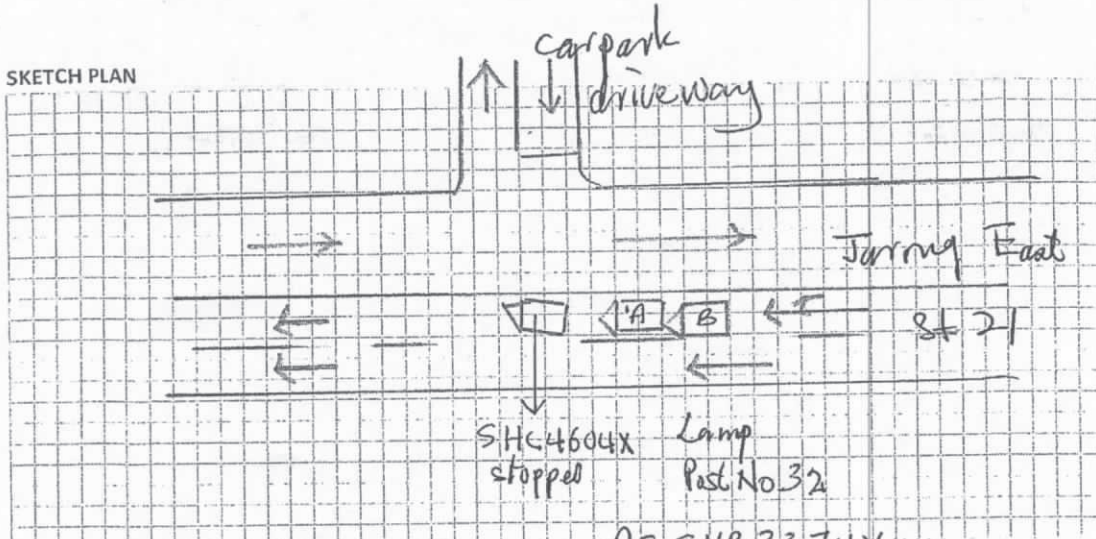 SKETCH PLAN
carpark
driveway
Jurong East
St 21
A
B
SHC4604X
stopped
Lamp
Post No 32